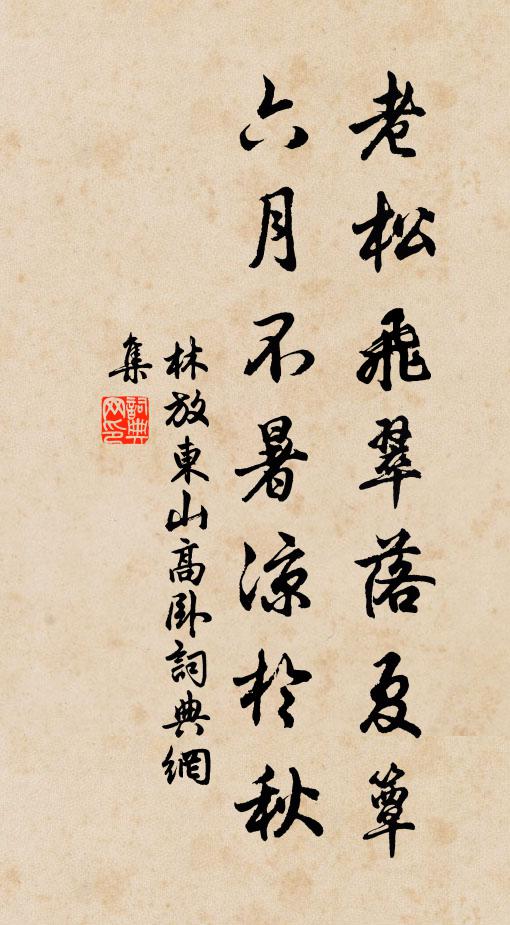 老松飛翠落夏簟
六月不暑涼於秋
林放東山高臥詞典網
集
詞典網印